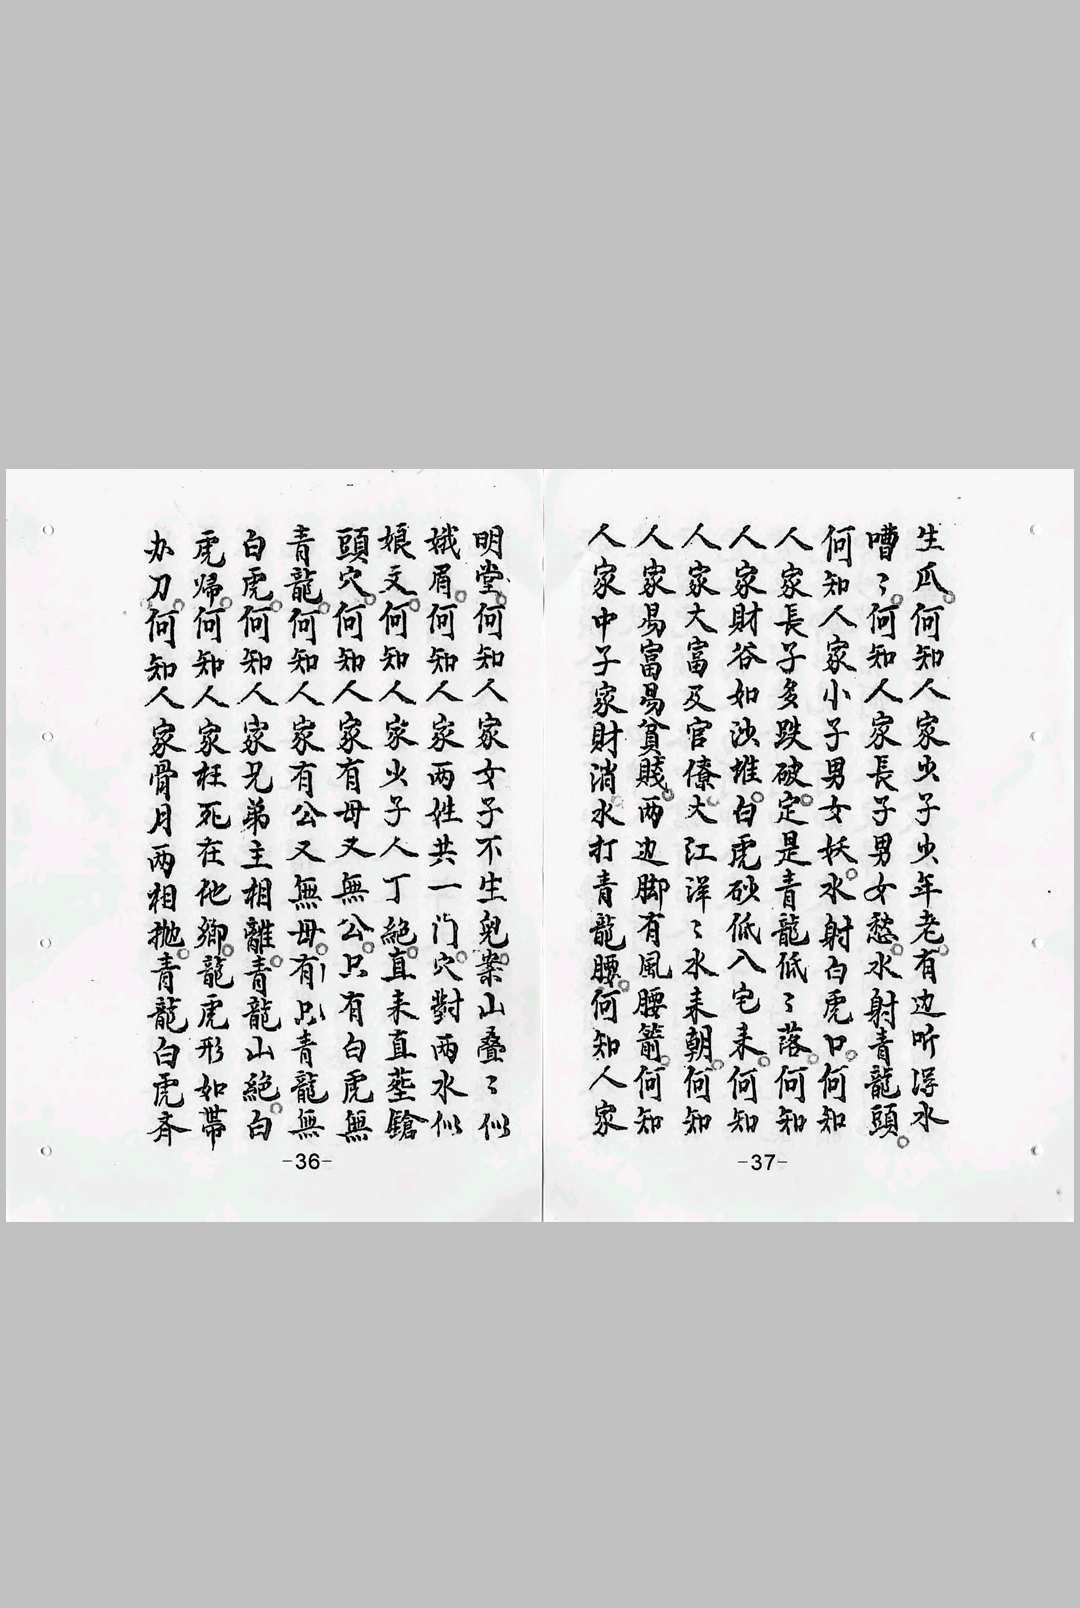 明堂。何知人家女子不生兒。案山叠〻似
娥眉。何知人家两姓共一门。穴對两水似
娘文。何知人家少子人丁絕。直来直塟鎗
頭穴。何知人家有母又無公。只有白虎無
青龍。何知人家有公又無母。有只青龍無
白虎。何知人家兄弟主相離。青龍山絕白
虎帰。何知人家枉死在他鄉。龍虎形如帶
办刀。何知人家骨月两相抛。青龍白虎斉
-36-
生瓜。何知人家少子少年老。有边听淂水
嘈〻。何知人家長子男女愁。水射青龍頭。
何知人家小子男女妖。水射白虎口。何知
人家長子多跌破。定是青龍低〻落。何知
人家財谷如沙堆。白虎砂低入宅来。何知
人家大富及官僚。大江洋〻水来朝。何知
人家易富易貧賤。两边脚有風腰箭。何知
人家中子家財消。水打青龍腰。何知人家
-37-